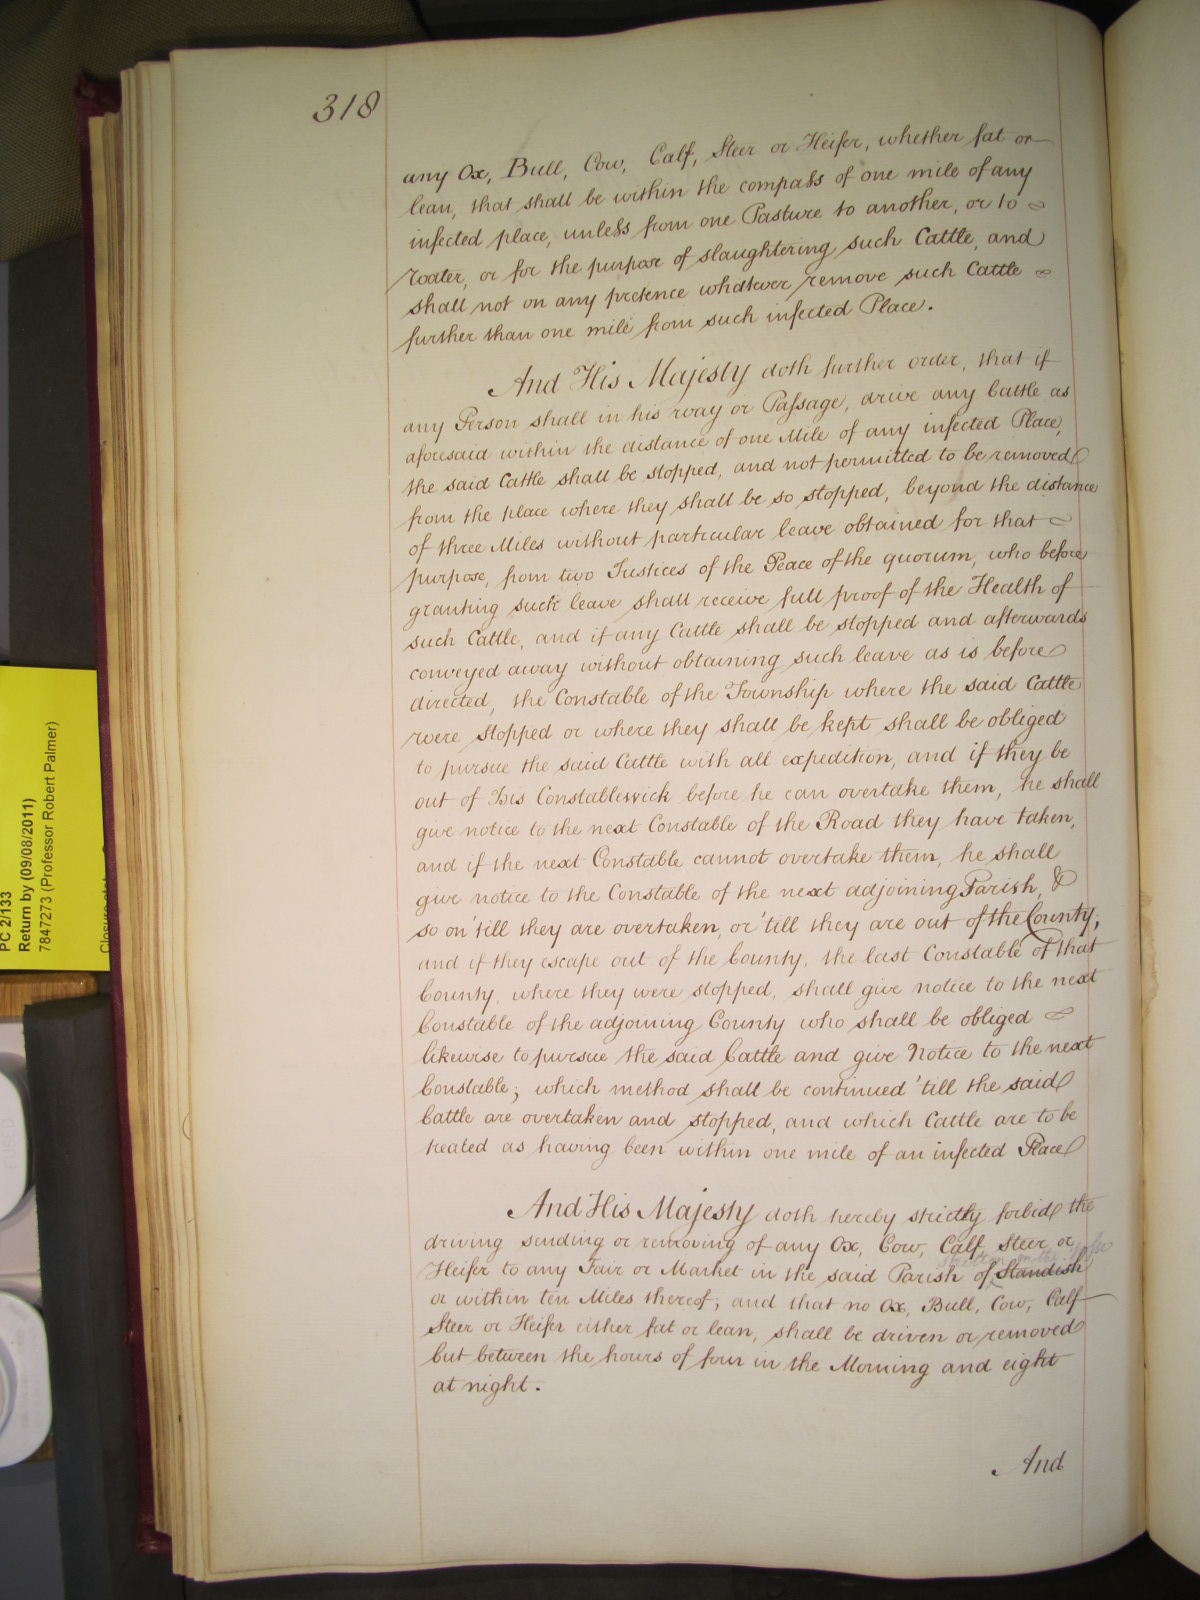 318
any Ox, Bull, Cow, Calf, Steer or Heifer, whether fat or
lean, that shall be within the compass of one mile of any
infected place, unless from one Pasture to another, or to
water, or for the purpose of slaughtering such Cattle, and
shall not on any pretence whatever remove such Cattle
further than one mile from such infected Place.
And His Majesty doth further order, that if
any Person shall in his way or Passage, drive any Cattle as
aforesaid within the distance of one Mile of any infected Place,
the said Cattle shall be stopped, and not permitted to be removed
from the place where they shall be so stopped, beyond the distance
of three Miles without particular leave obtained for that
purpose, from two Justices of the Peace of the quorum, who before
granting such leave shall receive full proof of the Health of
such Cattle, and if any Cattle shall be stopped and afterwards
conveyed away without obtaining such leave as is before
directed, the Constable of the Township where the said Cattle
were stopped or where they shall be kept shall be obliged
to pursue the said Cattle with all expedition, and if they be
out of his Constablewick before he can overtake them, he shall
give notice to the next Constable of the Road they have taken,
and if the next Constable cannot overtake them, he shall
give notice to the Constable of the next adjoining Parish, &
so on 'till they are overtaken, or 'till they are out of the County,
and if they escape out of the County, the last Constable of that
County, where they were stopped, shall give notice to the next
Constable of the adjoining County who shall be obliged
likewise to pursue the said Cattle and give Notice to the next
Constable; which method shall be continued 'till the said
Cattle are overtaken and stopped, and which Cattle are to be
treated as having been within one mile of an infected Place
And His Majesty doth hereby strictly forbid the
driving sending or removing of any Ox, Cow, Calf Steer or
Heifer to any Fair or Market in the said Parish of Standish
or within ten Miles thereof; and that no Ox, Bull, Cow, Calf
Steer or Heifer either fat or lean, shall be driven or removed
but between the hours of four in the Morning and eight
at night.
And
PC 2/133
Return by (09/08/2011)
7847273 (Professor Robert Palmer)